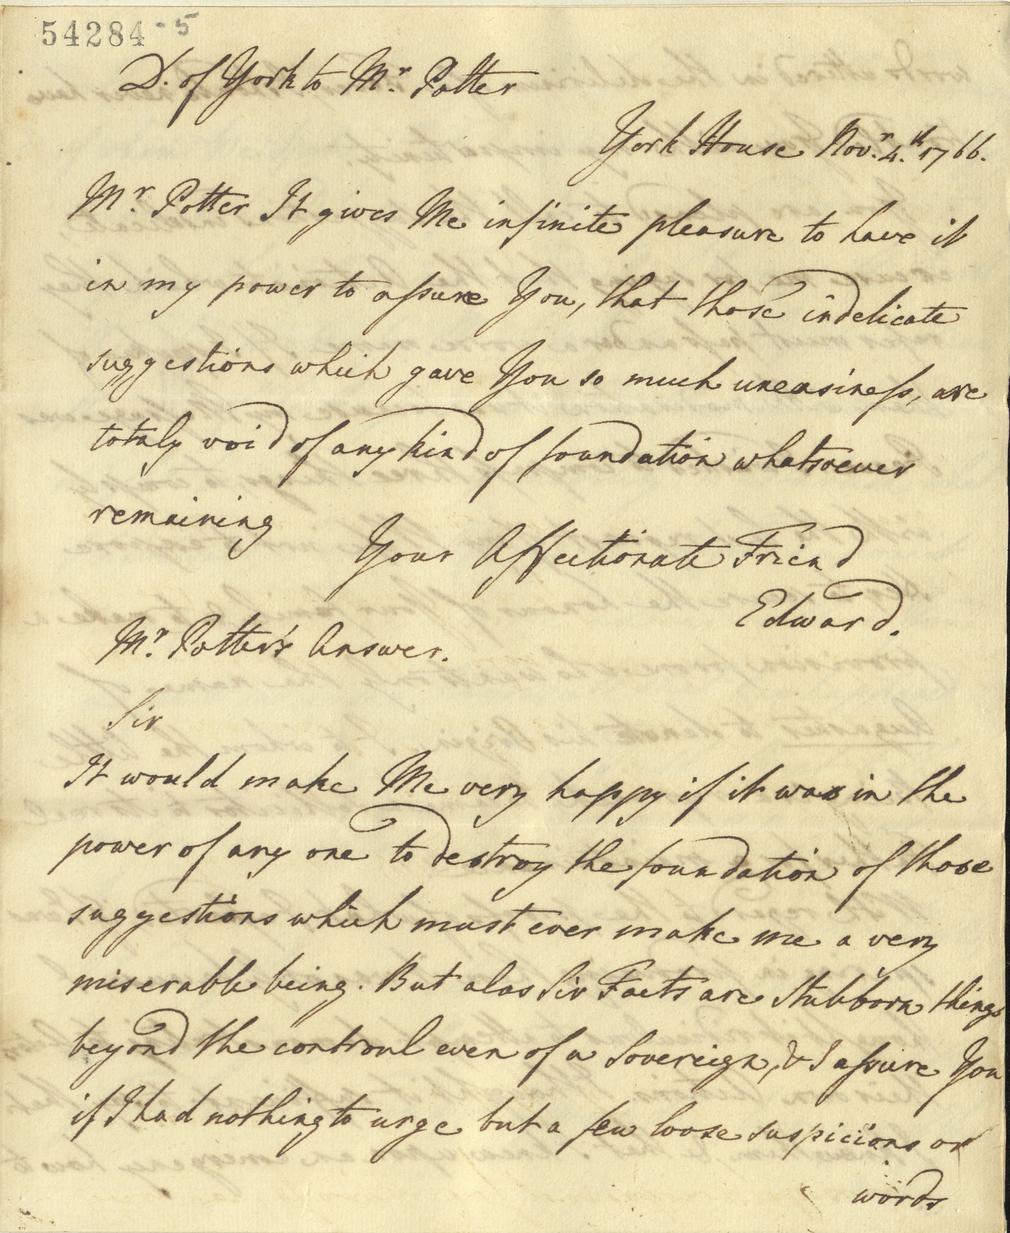 54284-5
D. of York to Mr. Potter
York House Novr. 4.th 1766.
Mr. Potter It gives Me infinite pleasure to have it
in my power to assure You, that those indelicate
suggestions which gave You so much uneasiness, are
totaly void of any kind of foundation whatsoever
remaining
Your Affectionate Friend
Edward.
Mr. Potter's Answer.
Sir
It would make Me very happy if it was in the
power of any one to destroy the foundation of those
suggestions which must ever make me a very
miserable being. But alas Sir Facts are Stubborn things
beyond the controul even of a Sovereign, & I assure You
if I had nothing to urge but a few loose suspicions or
words